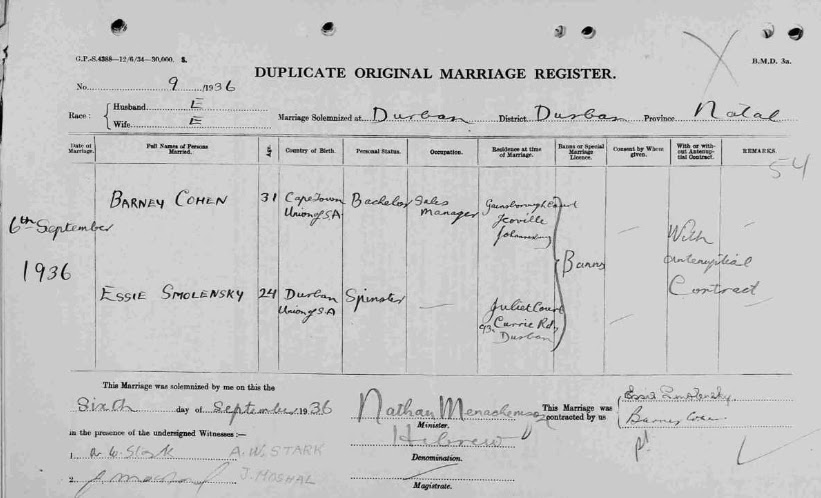 G.P.-S.4388—12/6/34—30,000. S.
B.M.D. 3a.
DUPLICATE ORIGINAL MARRIAGE REGISTER.
No. 9 /1936
Race: Husband E
Wife E
Marriage Solemnized at Durban District Durban Province Natal
Date of Marriage. Full Names of Persons Married. Age. Country of Birth. Personal Status. Occupation. Residence at time of Marriage. Banns or Special Marriage Licence. Consent by Whom given. With or without Antenuptial Contract. REMARKS.
54
6th September
1936
BARNEY COHEN 31 Cape Town Union of S.A Bachelor Sales Manager Gainsborough Court Yeoville Johannesburg
Banns
With Antenuptial Contract
ESSIE SMOLENSKY 24 Durban Union of S.A Spinster — Juliet Court Currie Rd, Durban
This Marriage was solemnized by me on this the
Sixth day of September 1936
Nathan
Minister.
This Marriage was contracted by us
Essie Smolensky
Barney Cohen
in the presence of the undersigned Witnesses:—
Hebrew
Denomination.
1. A. W. Stark A. W. STARK
2. J Moshal J. MOSHAL
Magistrate.